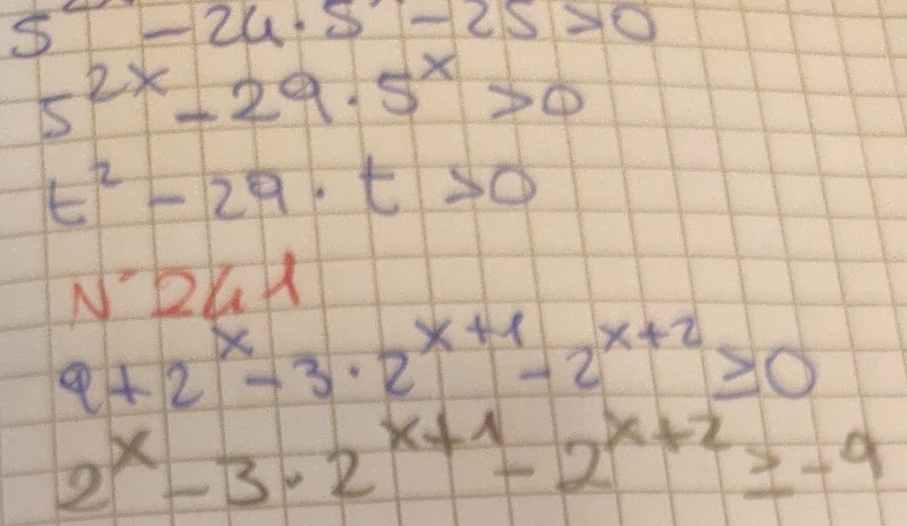 - 24·5 - 25 > 0
5^2x - 29·5^x > 0
t² - 29·t > 0
N° 241
9 + 2^x - 3·2^x+1 - 2^x+2 ≥ 0
2^x - 3·2^x+1 - 2^x+2 ≥ -9